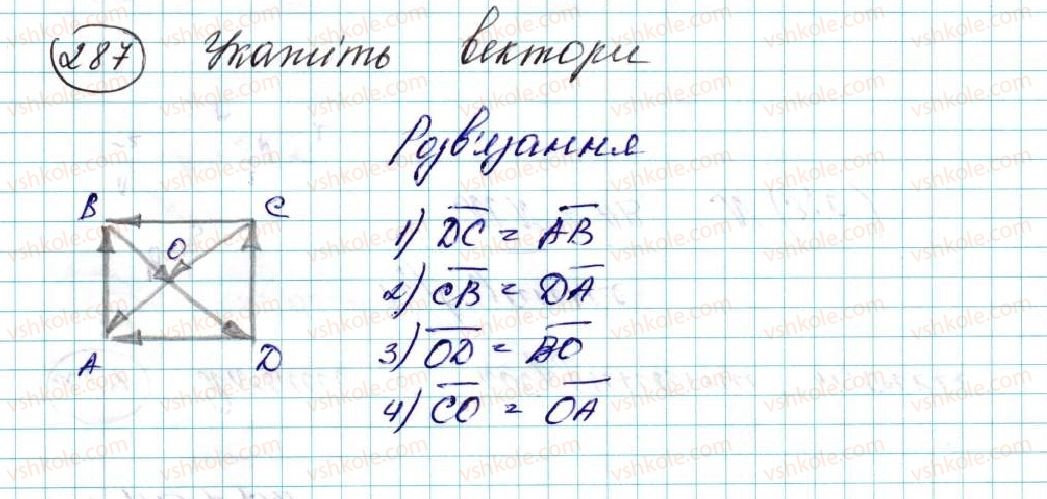 287 Укажіть вектори
Розв'язання
B C
O
A D
1) D̅C̅ = A̅B̅
2) C̅B̅ = D̅A̅
3) O̅D̅ = B̅O̅
4) C̅O̅ = O̅A̅
vshkole.com